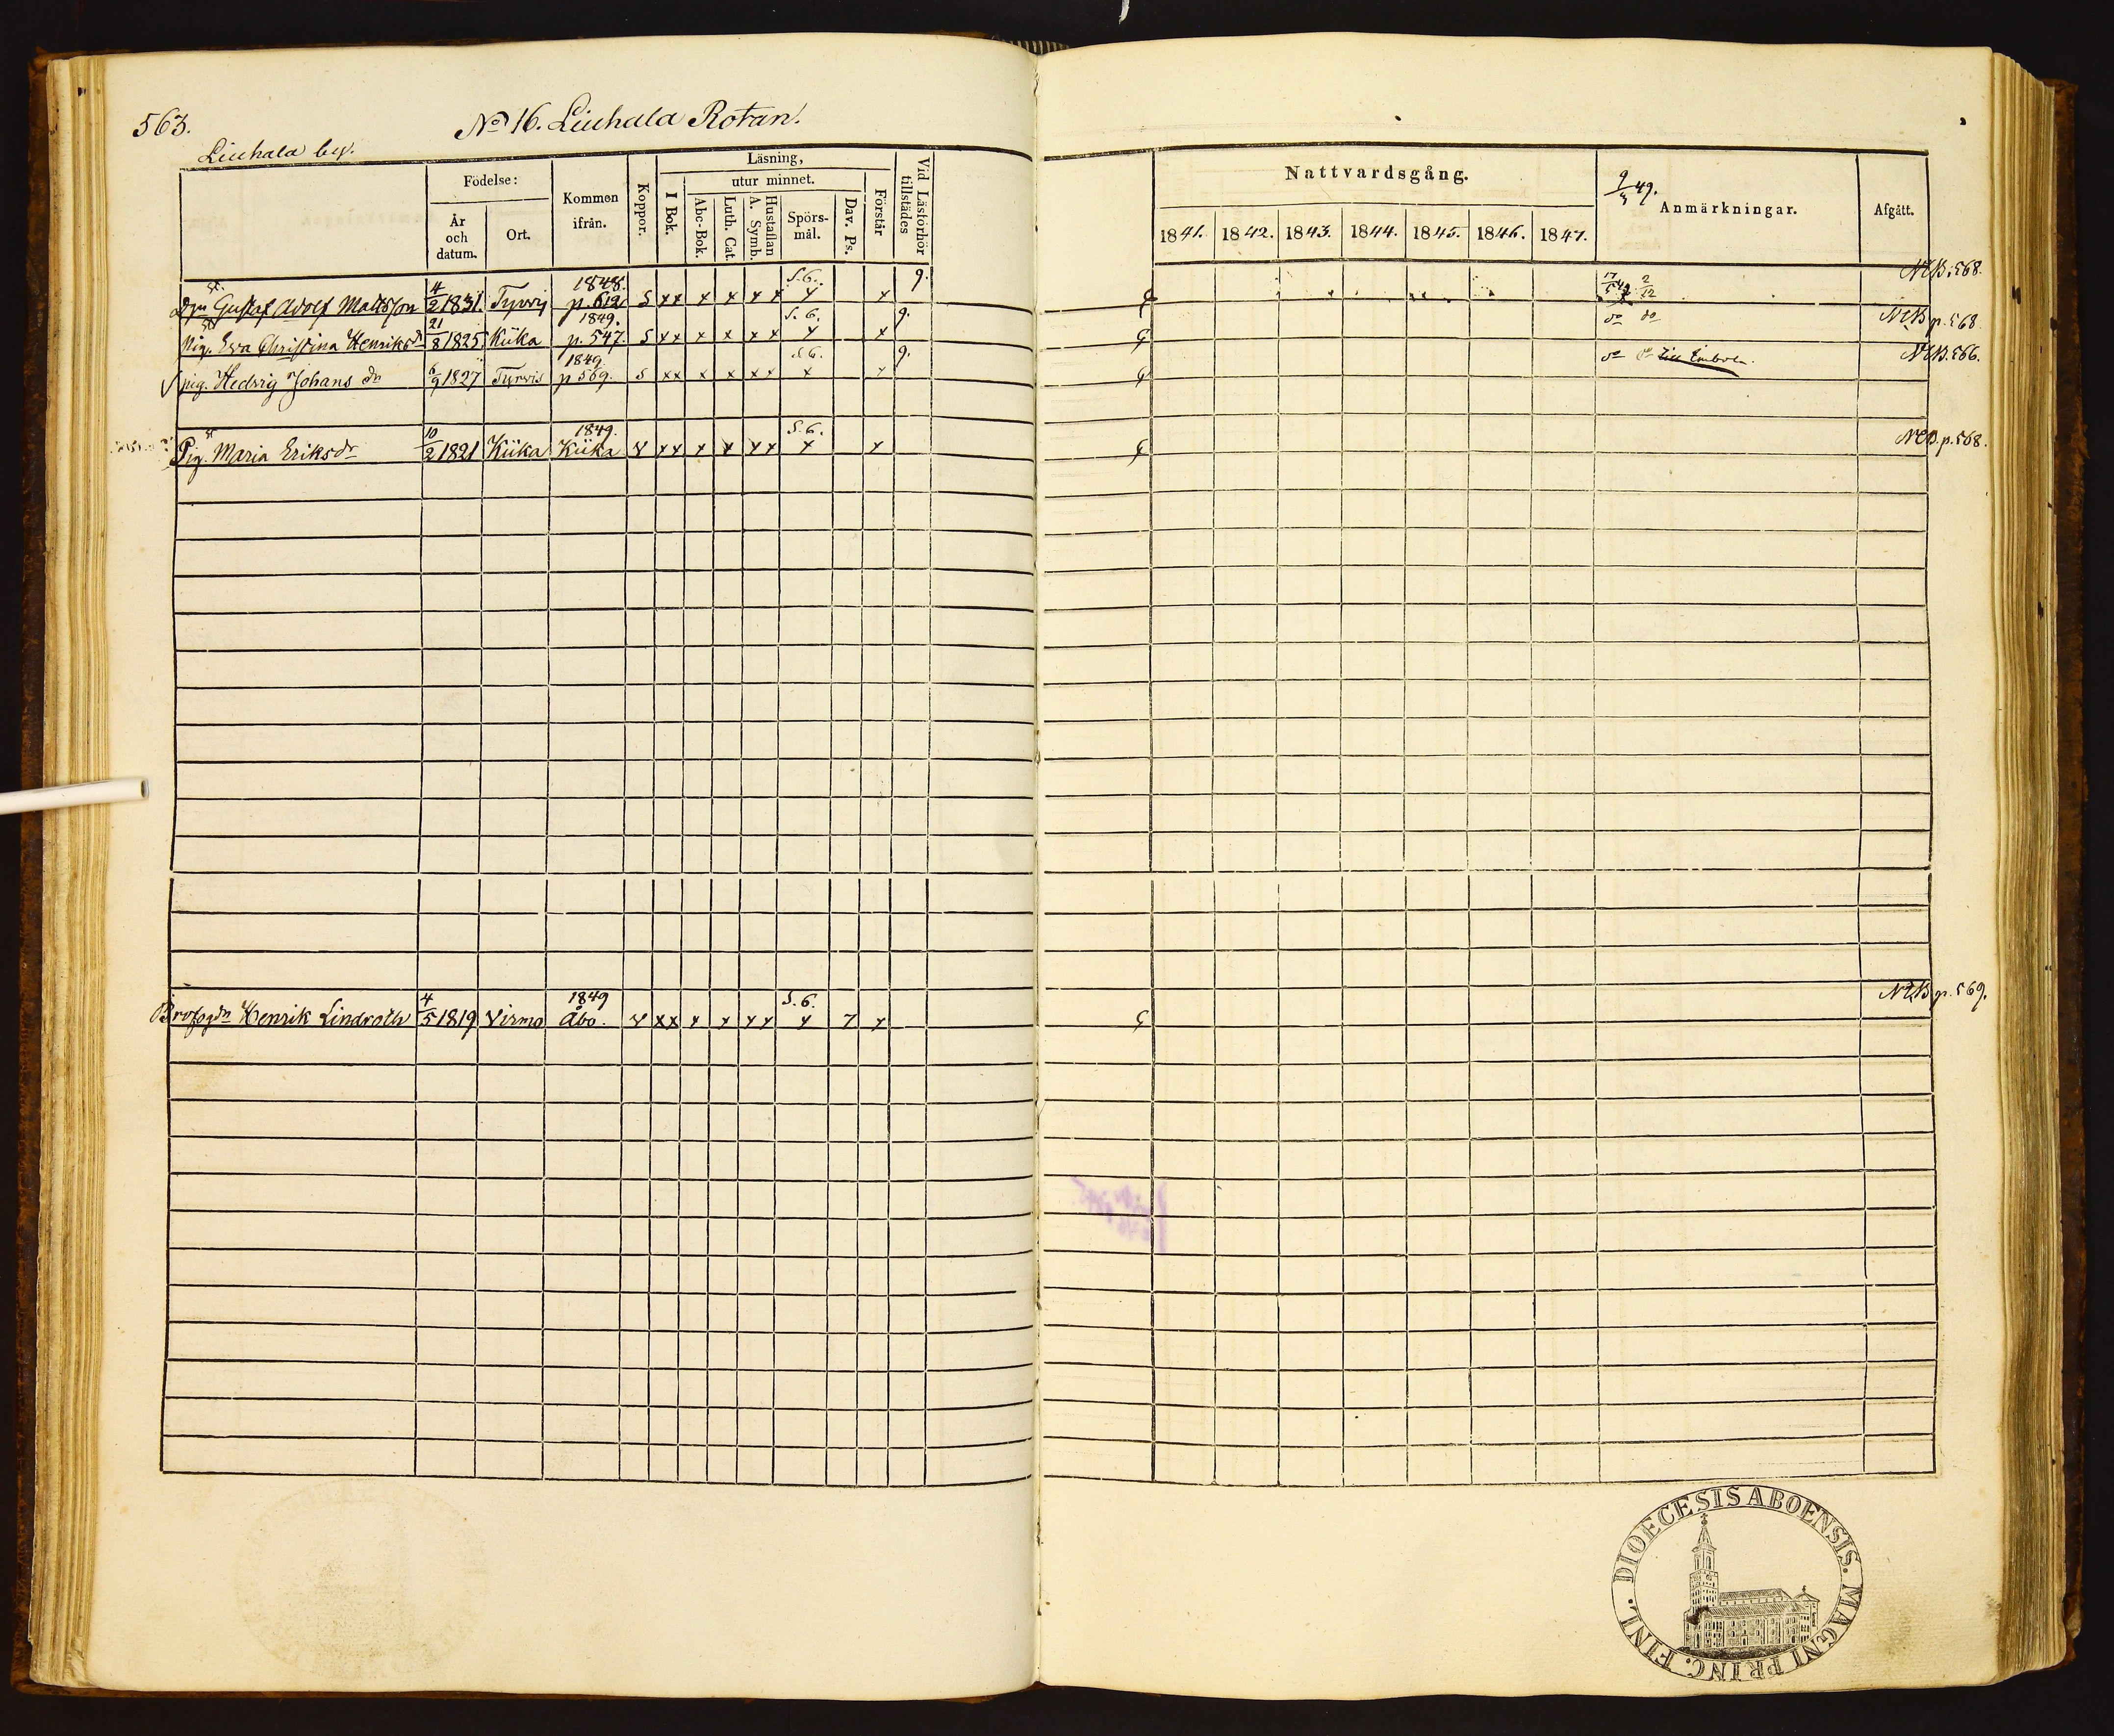 563. No 16. Liuhala Rotan.
Liuhala by.
Födelse: År och datum. Ort. Kommen ifrån. Koppor. Läsning, I Bok. utur minnet. Abc-Bok. Luth. Cat. Hustaflan A. Symb. Spörsmål. Dav. Ps. Förstår Vid Läsförhör tillstädes
Nattvardsgång. 1841. 1842. 1843. 1844. 1845. 1846. 1847. 9/5 49. Anmärkningar. Afgått.
Gustaf Adolf Mattsson 4/2 1831. Tyrvis 1848. p. 612 S x x x x x x S.6. x x 9. 17/5 49 2/12 NCB. 568.
Pig. Eva Christina Henriksdr 21/8 1825 Kiika 1849. p. 547. S x x x x x x S.6. x x 9. do do NCB p. 568
pig. Hedvig Johans dr 6/9 1827 Tyrvis 1849 p 569. S x x x x x x S.6. x x 9. do do NCB. 566.
Pig. Maria Eriksdr 10/2 1821 Kiika 1849. Kiika V x x x x x x S.6. x x NCB. p. 568.
Henrik Lindroth 4/5 1819 Virmo 1849 Åbo. V x x x x x x S.6. x 7 x NCB p. 569.
DIOECESIS ABOENSIS. MAGNI PRINC. FINL.